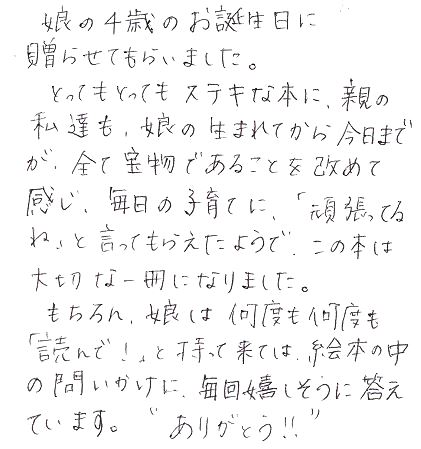 娘の4歳のお誕生日に
贈らせてもらいました。
とってもとってもステキな本に、親の
私達も、娘の生まれてから今日まで
が、全て宝物であることを改めて
感じ、毎日の子育てに、「頑張ってる
ね」と言ってもらえたようで、この本は
大切な一冊になりました。
もちろん、娘は何度も何度も
「読んで！」と持って来ては、絵本の中
の問いかけに、毎回嬉しそうに答え
ています。“ありがとう!!”